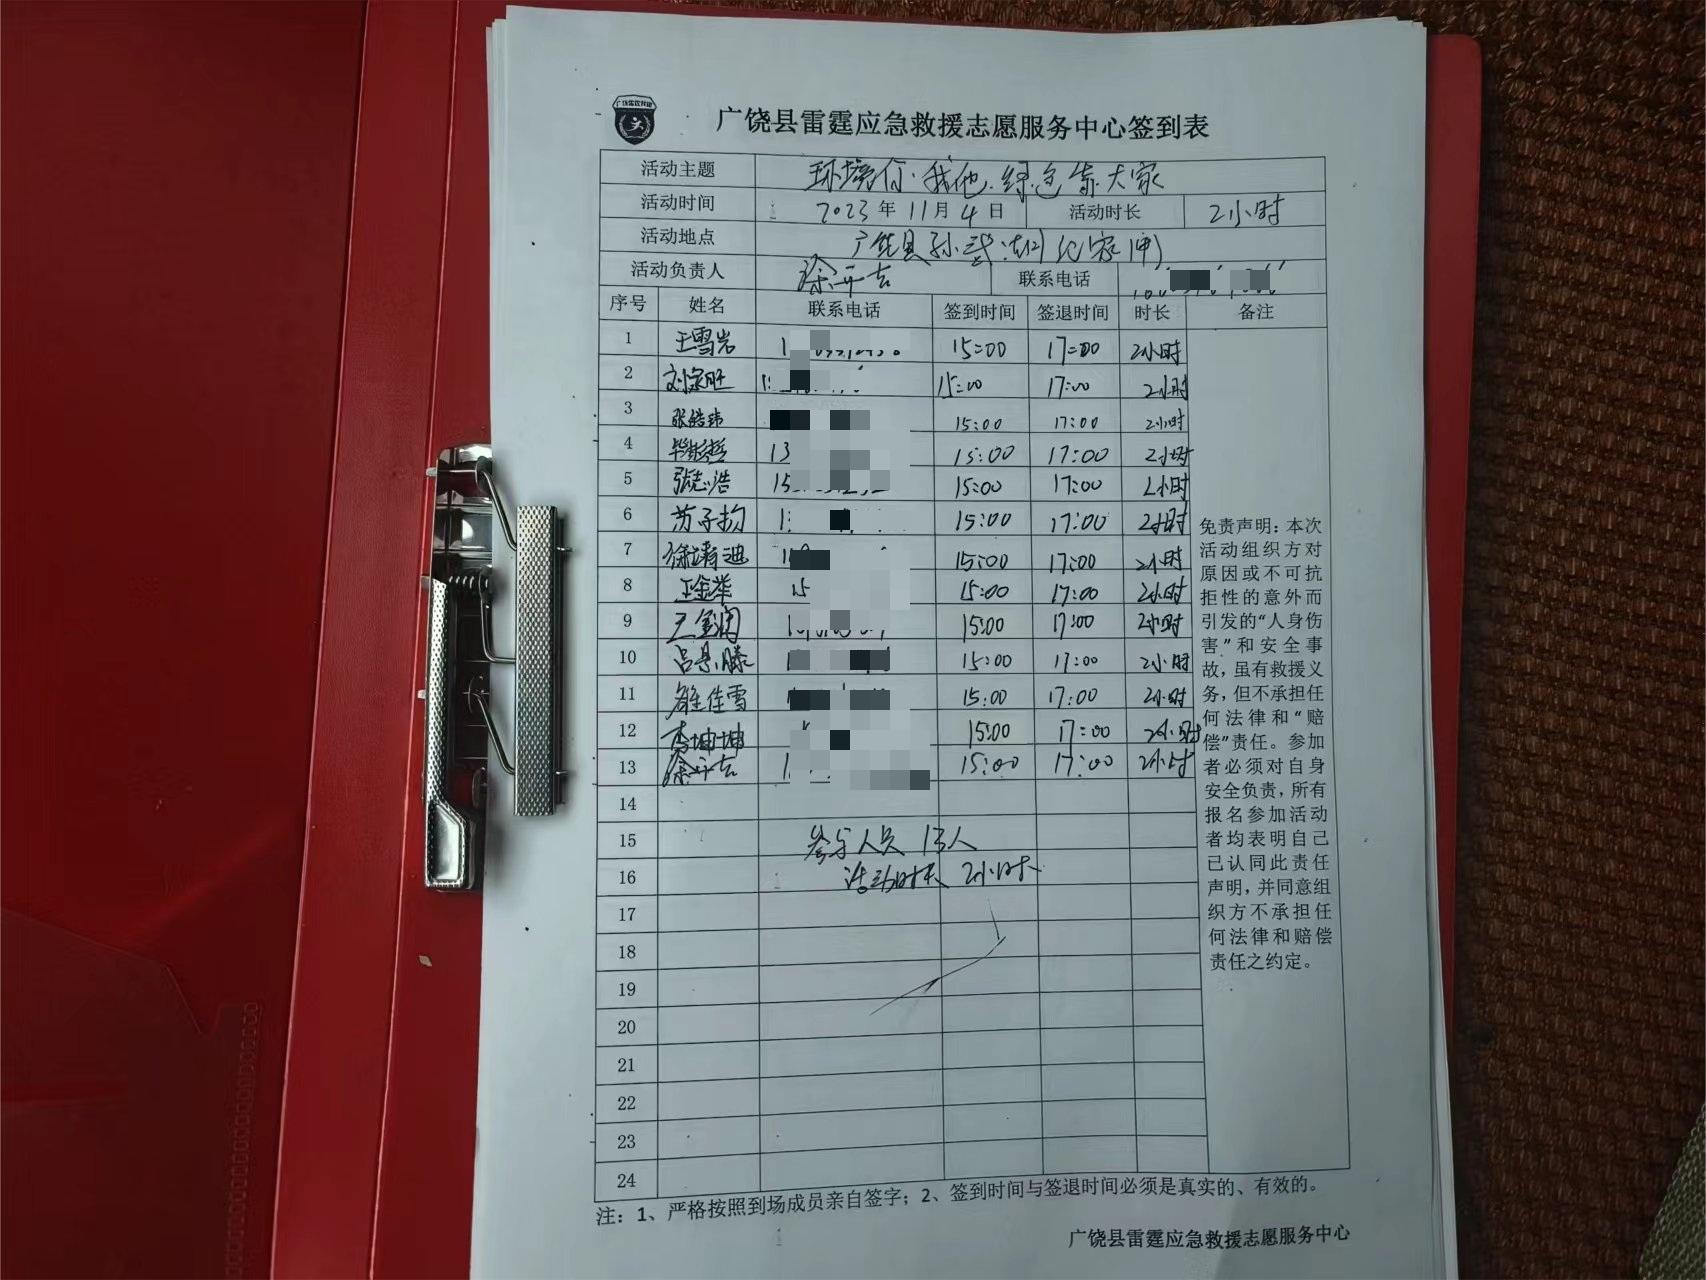 广饶县雷霆应急救援志愿服务中心签到表
活动主题 环境你.我他.绿色靠大家
活动时间 2023年11月4日 活动时长 2小时
活动地点 广饶县孙武
活动负责人 徐开吉 联系电话
序号 姓名 联系电话 签到时间 签退时间 时长 备注
1 王雪岩 15:00 17:00 2小时
2 刘家旺 15:00 17:00 2小时
3 张皓玮 15:00 17:00 2小时
4 13 15:00 17:00 2小时
5 张志浩 15:00 17:00 2小时
6 苏子扬 15:00 17:00 2小时
7 徐靖迪 15:00 17:00 2小时
8 王金举 15 15:00 17:00 2小时
9 王金润 15:00 17:00 2小时
10 吕景滕 15:00 17:00 2小时
11 佳雪 15:00 17:00 2小时
12 李坤坤 15:00 17:00 2小时
13 徐开吉 15:00 17:00 2小时
14
15 参与人员 13人
16 活动时长 2小时
17
18
19
20
21
22
23
24
免责声明：本次
活动组织方对
原因或不可抗
拒性的意外而
引发的“人身伤
害”和安全事
故，虽有救援义
务，但不承担任
何法律和“赔
偿”责任。参加
者必须对自身
安全负责，所有
报名参加活动
者均表明自己
已认同此责任
声明，并同意组
织方不承担任
何法律和赔偿
责任之约定。
注：1、严格按照到场成员亲自签字；2、签到时间与签退时间必须是真实的、有效的。
广饶县雷霆应急救援志愿服务中心